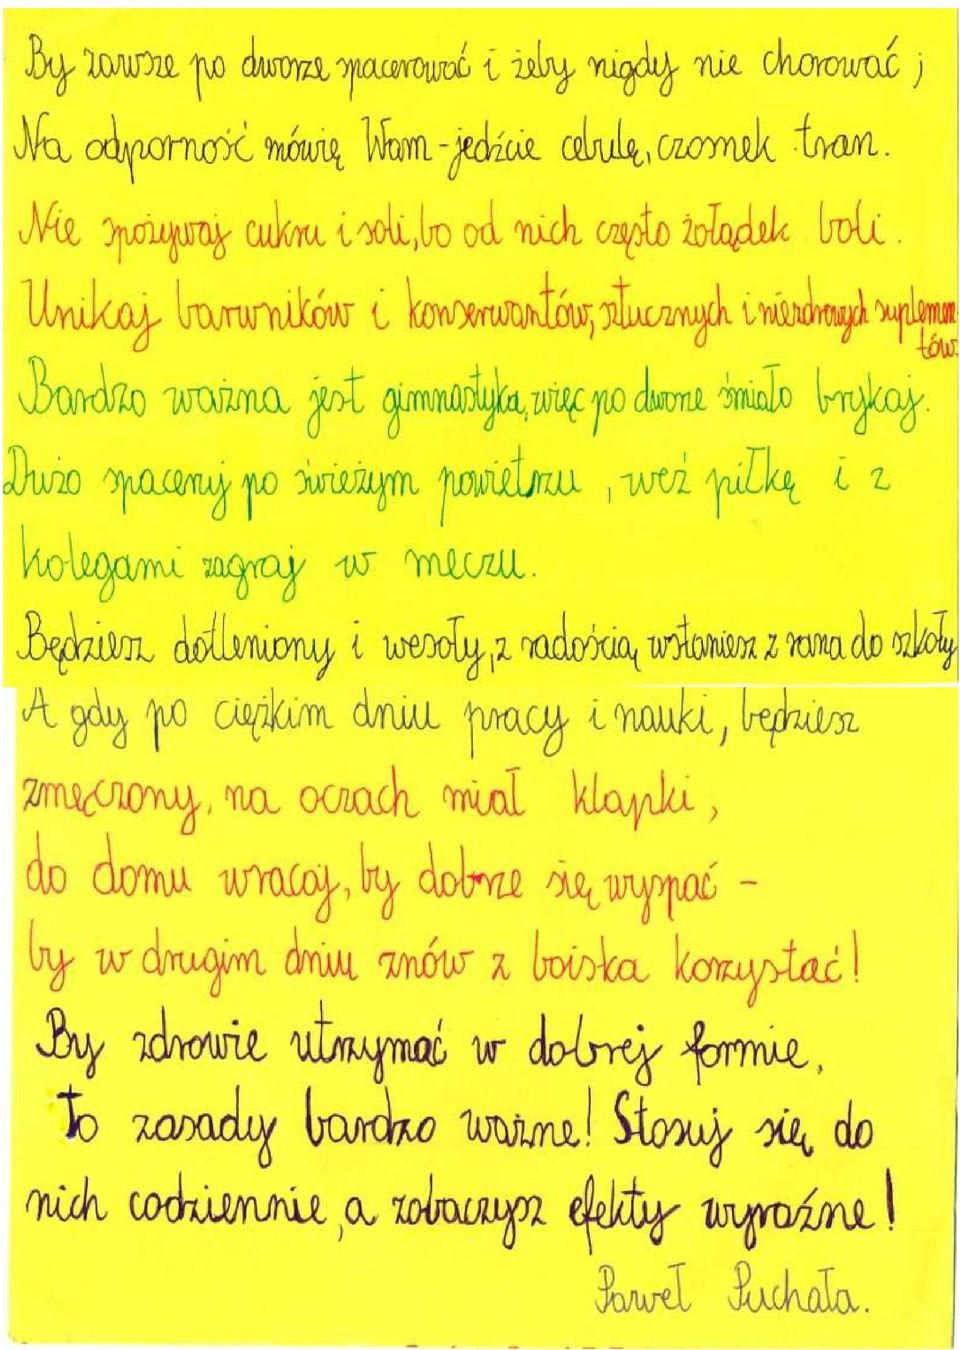 By zawsze po dworze spacerować i żeby nigdy nie chorować ;
Na odporność mówię Wam - jedźcie cebulę, czosnek tran.
Nie spożywaj cukru i soli, bo od nich często żołądek boli.
Unikaj barwników i konserwantów, sztucznych i niezdrowych suplemen-
tów.
Bardzo ważna jest gimnastyka, więc po dworze śmiało brykaj.
Dużo spaceruj po świeżym powietrzu, weź piłkę i z
kolegami zagraj w meczu.
Będziesz dotleniony i wesoły, z radością wstaniesz z rana do szkoły
A gdy po ciężkim dniu pracy i nauki, będziesz
zmęczony, na oczach miał klapki,
do domu wracaj, by dobrze się wyspać -
by w drugim dniu znów z boiska korzystać!
By zdrowie utrzymać w dobrej formie,
To zasady bardzo ważne! Stosuj się do
nich codziennie, a zobaczysz efekty wyraźne!
Paweł Puchała.